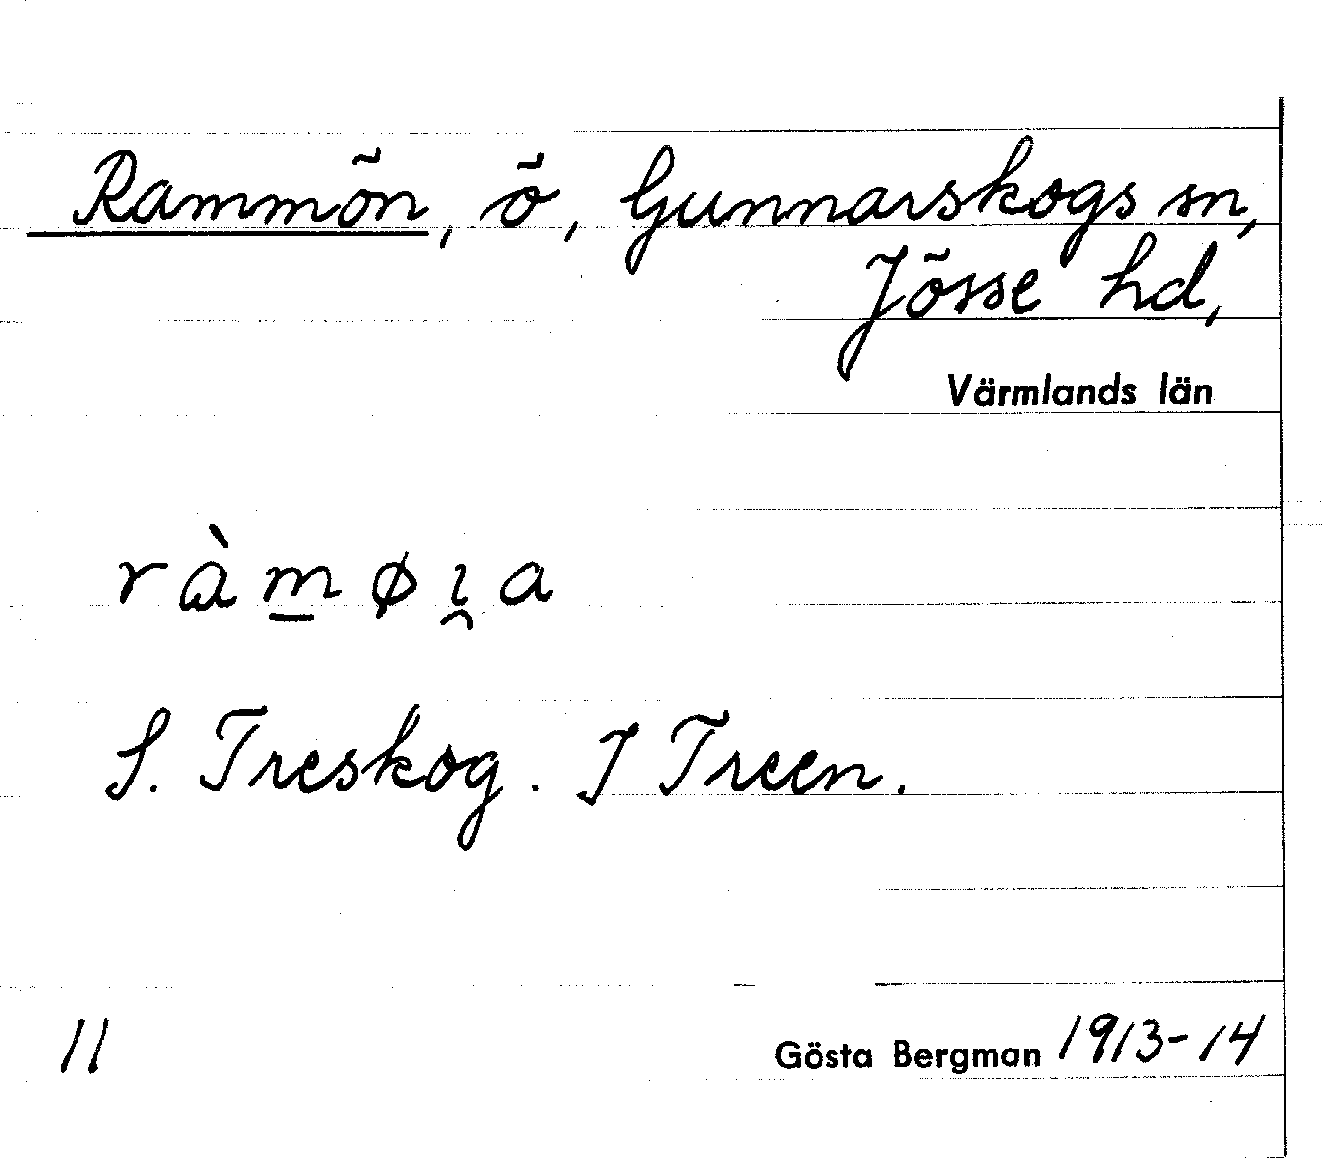 Rammön, ö, Gunnarskogs sn,
Jösse hd,
Värmlands län
ràm̲øı̯a
S. Treskog. I Treen.
11
Gösta Bergman 1913-14